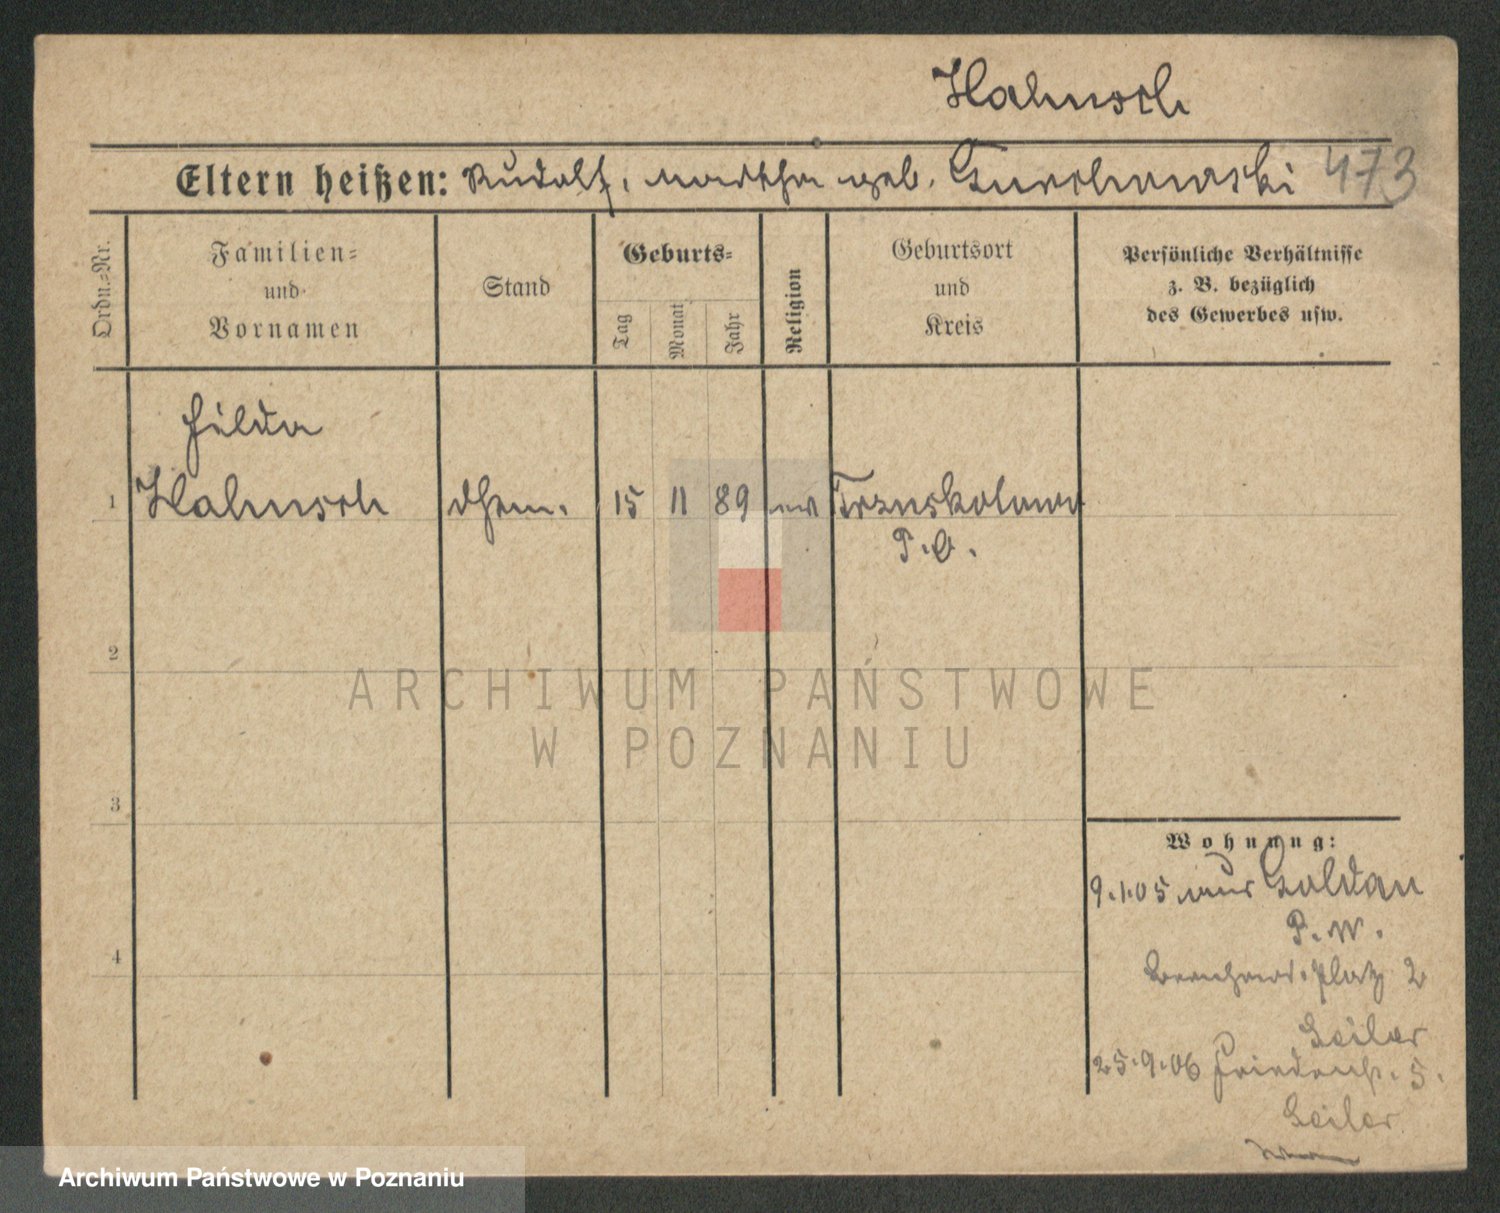 Hahnsch
Eltern heißen: Rudolf, Martha geb.
473
Ordn.-Nr.
Familien-
und
Vornamen
Stand
Geburts-
Tag
Monat
Jahr
Religion
Geburtsort
und
Kreis
Persönliche Verhältnisse
z. B. bezüglich
des Gewerbes usw.
Hilda
1 Hahnsch 15 11 89 ev
P. O.
2
ARCHIWUM PAŃSTWOWE
W POZNANIU
3
Wohnung:
9.1.05 aus Soldau
P. W.
4
Bernhard. Platz 2
Seiler
25.9.06 5.
Seiler
Archiwum Państwowe w Poznaniu